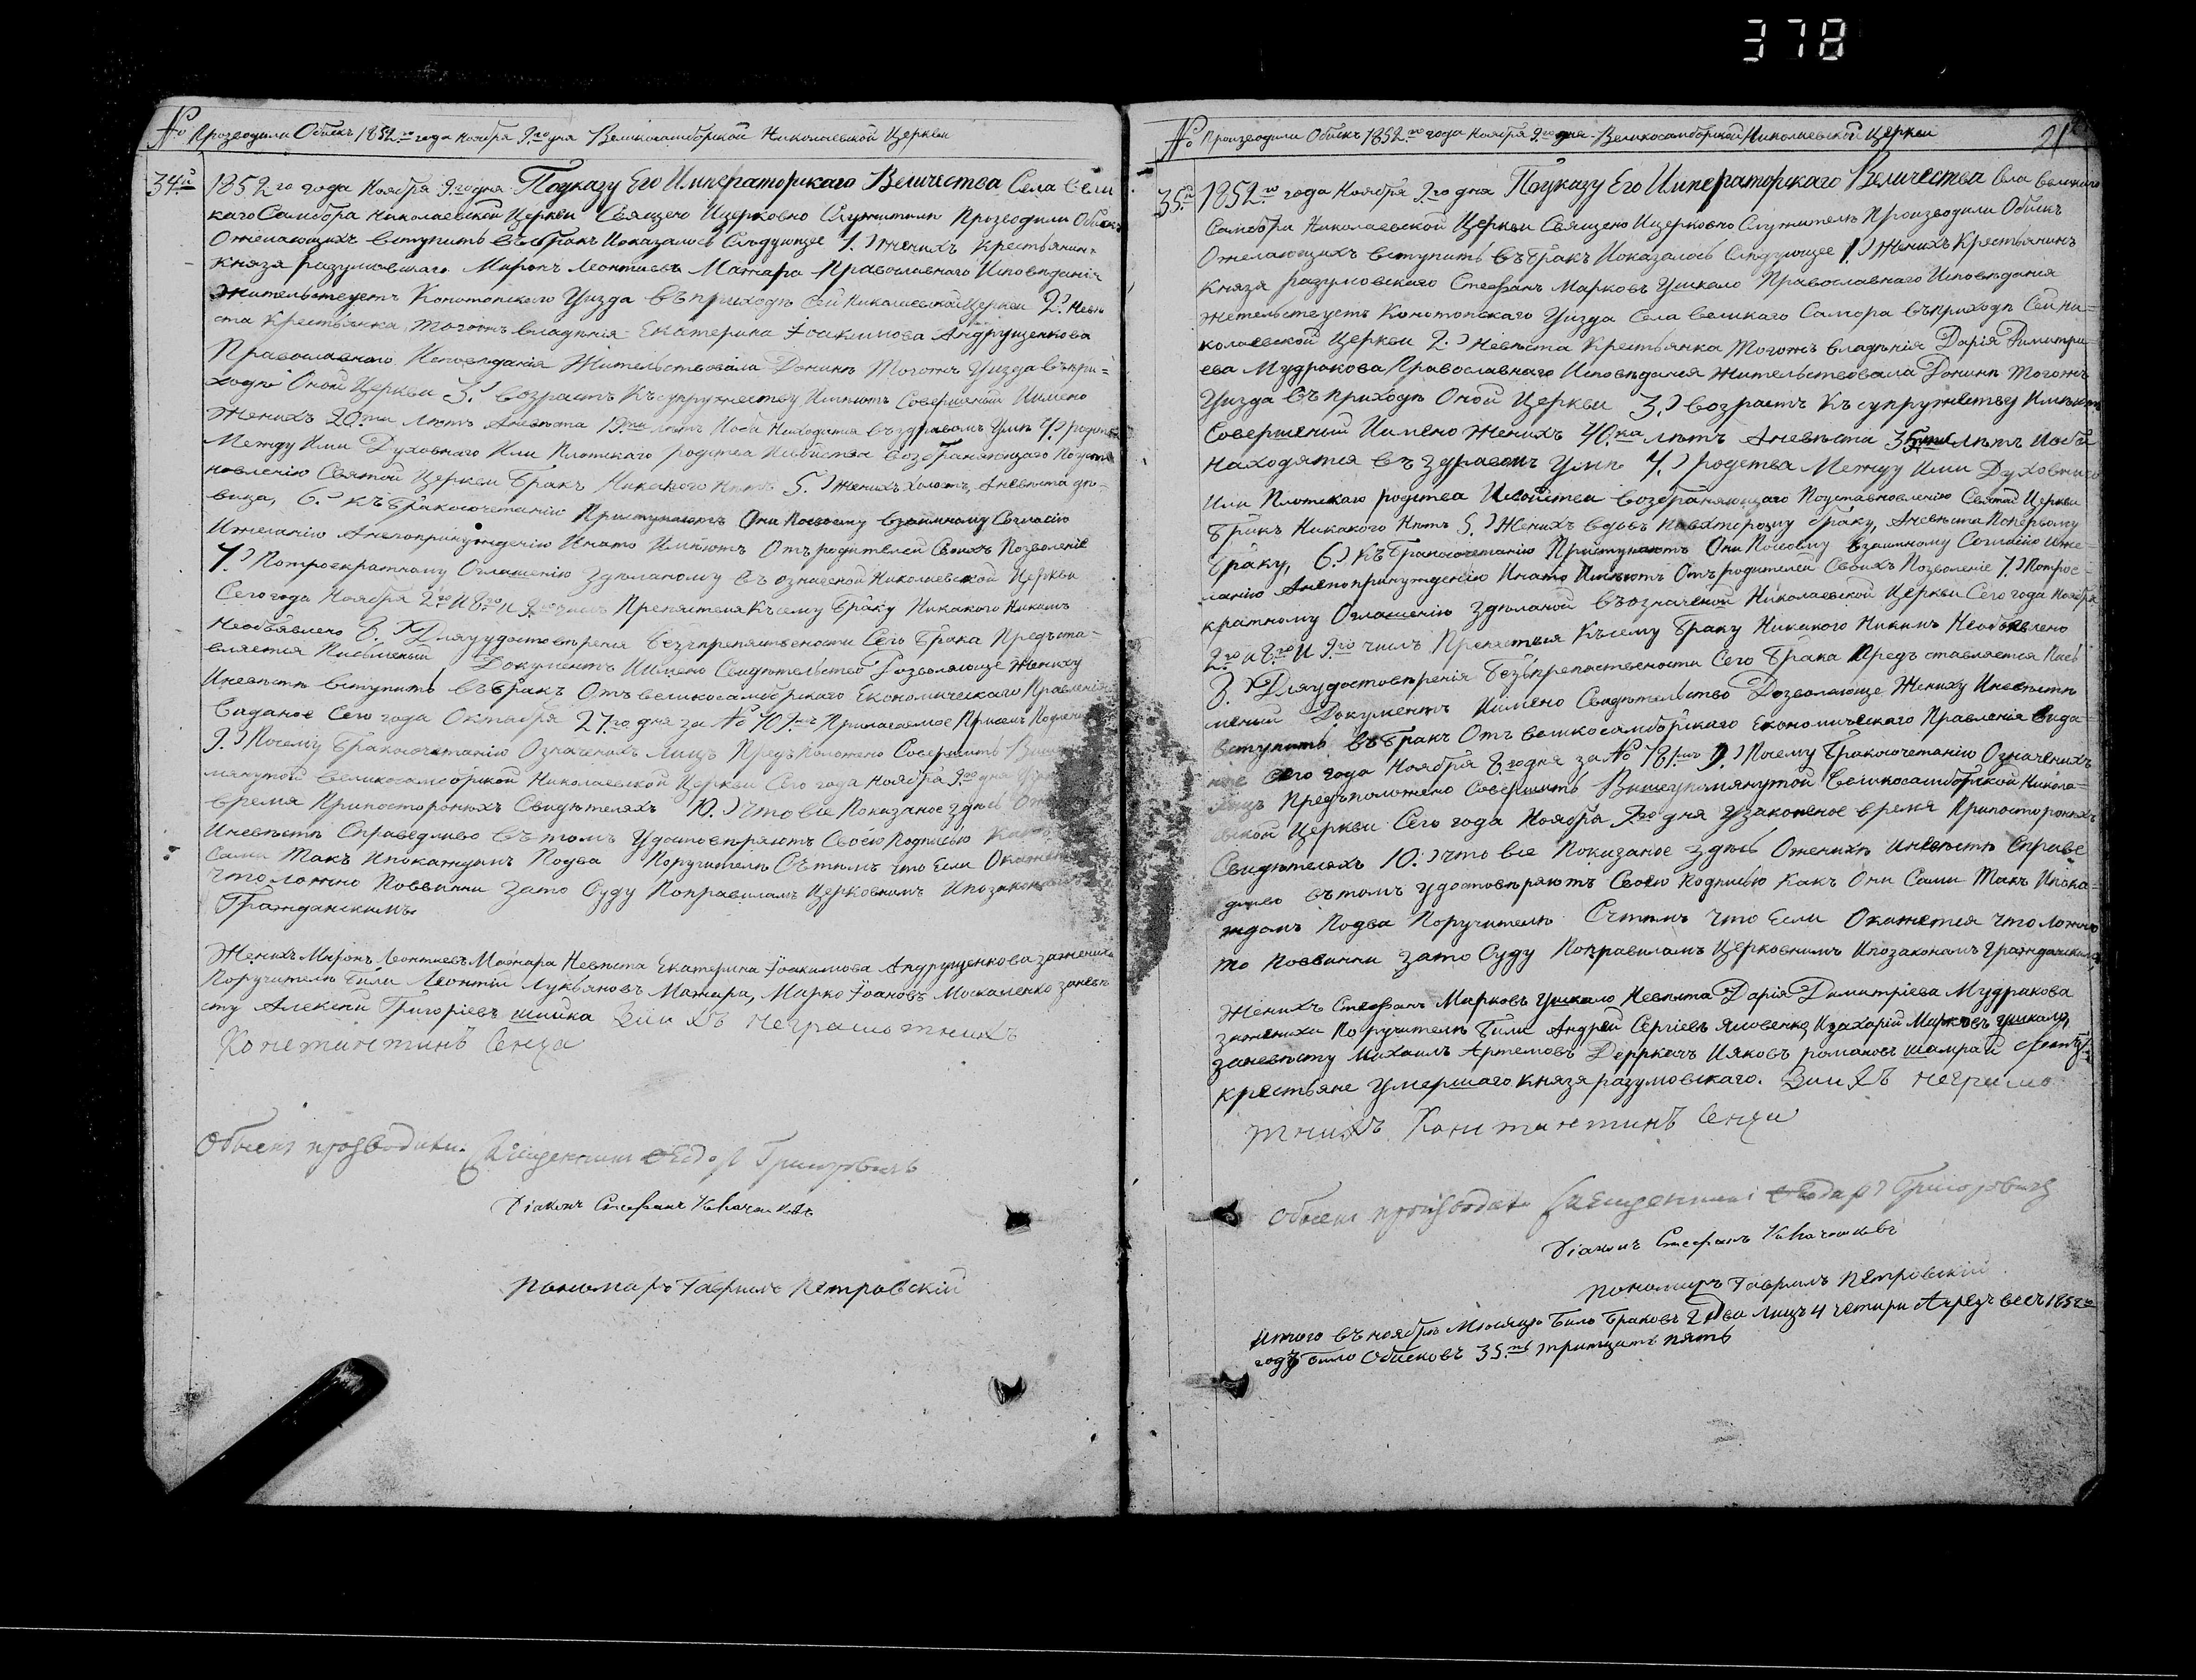 378
№ Прозводили Обискъ 1852.го года Ноября 9.го дня Великосамборской Николаевской Церкви
34.й 1852го года Ноября 9.го дня Поуказу Его Императорскаго Величества Села Вели
каго Самбора Николаевской Церкви Священо Ицерковно Служители Прозводили Обискъ
Ожелающихъ вступить въ бракъ Ипоказалось Слѣдующее 1.) Женихъ Крестьянинъ
Князя разумовскаго Миронъ Леонтиевъ Мажара Православнаго Исповѣданія
Жительствуетъ Конотопского Уизда въ приходѣ сей Николаевской Церкви 2.) Невѣ
ста Крестьянка Тогожъ владѣнія Екатерина Іоакимова Андрущенкова
Православного Исповѣданія Жительствовала Донинѣ Тогожъ Уизда въ при=
ходѣ Оной Церкви 3.) возрастъ Къ супружеству Имѣютъ Совершеный Иимено
Женихъ 20.ти лѣтъ Аневѣста 19.ти лѣтъ Иоба Находятся въ здравомъ Умѣ 4.) родства
Между Ими Духовного Или Плотскаго родства Исвойства возбраняющаго Поуста
новлению Святой Церкви Бракъ Никакого Нѣтъ 5.) Женихъ Холостъ, Аневѣста дѣ=
вица, 6.) Къ Бракосочетанію Приступаютъ Они Посвоему взаимному Согласію
Ижеланію Анепопринужденію Инато Имѣютъ Отъ родителей Своихъ Позволеніе
7.) Потроекратному Оглашенію Здѣланому въ означеной Николаевской Церкви
Сего года Ноября 2.го И 8.го И 9.го чилъ Препятствия Къ сему Браку Никакого Никимъ
Необъявлено 8.) Дляудостовѣрения безъпрепятьствености Сего Брака Предъста=
вляется Писменый Документъ Иимено Свидѣтельство Дозволяюще Жениху
Иневѣстѣ вступить въ Бракъ Отъ великосамборскаго Економическаго Правленія
Виданое Сего года Октября 27.го дня за № 707.мъ Прилагаемое Присемъ
9.) Посему Бракосочетанію Означенихъ Лицъ Предъположено Совершить
мянутой великосамборской Николаевской Церкви Сего года Ноября 9.го дня
время Припостороннихъ Свидѣтеляхъ 10.) Что все Показаное здѣсь
Иневѣстѣ Справедливо въ томъ Удостовѣряютъ Своею Подписью
сами Такъ Ипокаждомъ Подва Поручителѣ Сътѣмъ что Если
Что ложно Повинни Зато Суду Поправиламъ Церковнимъ Ипозаконамъ
Гражданскимъ
Женихъ Миронъ Леонтиевъ Мажара Невѣста Екатерина Іоакимова Андрущенкова зажениха
Поручителѣ Били Леонтій Лукьяновъ Мажара, Марко Іоановъ Москаленко заневѣ
сту Алексѣй Григоріевъ Шийка Зни Хъ Неграмотнихъ
Константинъ Сенча
Обыскъ прозводили Священникъ Өеодоръ Григоровичъ
Діаконъ Стефанъ
Пономаръ Гавріилъ Петровскій
№ Производили Обискъ 1852.го года Ноября 9.го дня Великосамборской Николаевской Церкви 21
35.й 1852.го года Ноября 9.го дня Поуказу Его Императорскаго Величества Села Великаго
Самбора Николаевской Церкви Священо Ицерковно Служителѣ Производили Обискъ
Ожелающихъ вступить въ Бракъ Ипоказалось Слѣдующее 1.) Женихъ Крестьянинъ
Князя разумовскаго Стефанъ Марковъ Ушкало Православнаго Исповѣдания
Жетельствуетъ Конотопскаго Уизда Села великаго Самора въ приходѣ Сей Ни=
колаевской Церкви 2.) Невѣста Крестьянка Тогожъ владѣнія Дарія Димитри
ева Мудракова Православнаго Исповѣданія Жительствовала Донинѣ Тогожъ
Уизда въ приходѣ Оной Церкви 3.) возрастъ Къ супружеству Имѣютъ
Совершеный Иимено Женихъ 40.ка лѣтъ Аневѣста 35 лѣтъ Иоба
находятся въ здравомъ Умѣ 4.) родства Между Ими Духовнаго
Или Плотскаго родства Исвойства возбраняющаго Поуставновленію Святой Церкви
Бракъ Никакого Нѣтъ 5.) Женихъ вдовъ Повхторому браку, Аневѣста Поперьвому
Браку, 6.) Къ Бракосочетанію Приступаютъ Они Посвоему взаимному Согласію Иже=
ланію Анепопринужденію Инато Имѣютъ Отъ родителей Своихъ Позволеніе 7.) Потрое=
кратному Оглашенію Здѣланой въ означеной Николаевской Церкви Сего года Ноября
2.го И 8.го И 9.го чилъ Препятствия Къ сему Браку Никакого Никимъ Необъявлено
8.) Дляудостовѣренія безъпрепятствености Сего Брака Предъ ставляется Пись
меный Документъ Иимено Свидѣтельство Дозволяюще Жениху Иневѣстѣ
вступить въ Бракъ Отъ великосамборскаго Економическаго Правленія Вида=
ное Сего года Ноября 8.го дня за № 781.мъ 9.) Посему Бракосочетанію Означенихъ
Лицъ Предъположено Совершить Вишеупомянутой Великосамборской Никола=
евской Церкви Сего года Ноября 9.го дня Узаконеное время Припосторонихъ
Свидѣтеляхъ 10.) что все Показаное здѣсь Оженихѣ Иневѣстѣ Справе
дливо въ томъ удостовѣряютъ Своею Подписью Какъ Они Сами Такъ Ипока=
ждомъ Подва Поручителѣ Сътѣмъ что Если Окажется Что ложно
То Повинни Зато Суду Поправиламъ Церковнимъ Ипозаконамъ Гражданскимъ
Женихъ Стефанъ Марковъ Ушкало Невѣста Дарія Димитріева Мудракова
зажениха Поручителѣ Били Андрей Сергіевъ Яковенко Изахарій Марковъ Ушкало,
заневѣсту Михаилъ Артемовъ Деркачъ Ияковъ романовъ Шамрай
крестьяне Умершаго Князя разумовскаго. Зни Хъ Неграмо
тнихъ Константинъ Сенча
Обыскъ производили Священникъ Өеодоръ Григоровичъ
Діаконъ Стефанъ
Пономаръ Гавріилъ Петровскій
Итого въ ноябрѣ Мѣсяцѣ Било Браковъ 2 Два Лицъ 4 четири Ачрезъ весь 1852.й
годъ Било Обисковъ 35.ть тритцать пять